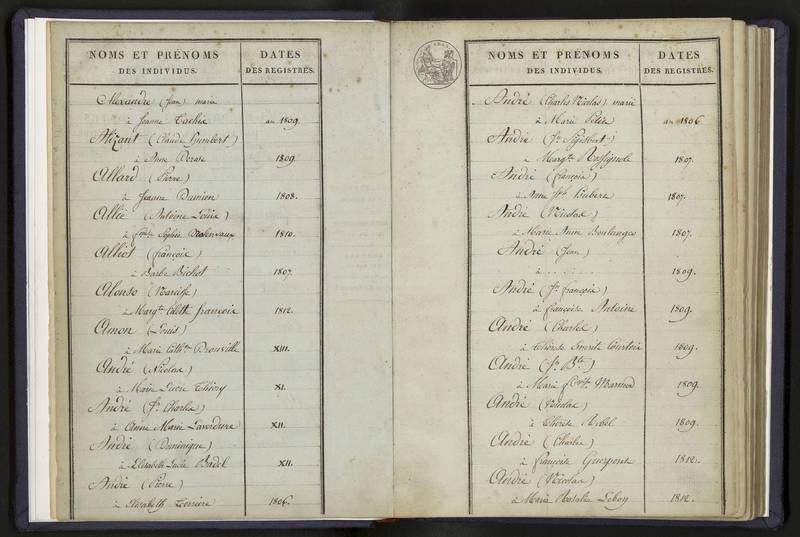 NOMS ET PRÉNOMS
DES INDIVIDUS.
DATES
DES REGISTRES.
Alexandre (Jean) marié
à Jeanne an 1809
Alizant (Claude Humbert)
à Anne 1809
Allard (Pierre)
à Jeanne Damien 1808.
Allié (Antoine Louis)
à Sophie 1810.
Alliot (françois)
à Barbe Bichet 1807.
Alonso (Narcisse)
à Margte Colette françois 1812.
Amon (Louis)
à Marie Cathne Drouville XIII.
André (Nicolas)
à Marie Lucie Thiéry XI.
André (Jh Charles)
à Anne Marie XII.
André (Dominique)
à Elisabeth Lucie Badel XII.
André (Pierre)
à Elisabeth Ferriere 1806.
NOMS ET PRÉNOMS
DES INDIVIDUS.
DATES
DES REGISTRES.
André (Charles Nicolas) marié
à Marie an 1806.
André (Jh Sigisbert)
à Margte Rossignole 1807.
André (françois)
à Anne 1807.
André (Nicolas)
à Marie Anne Boulanges 1807.
André (Jean)
à . . . . . . . 1809.
André (Jh françois)
à françoise Antoine 1809.
André (Charles)
à Thérèse Courtois 1809.
André (Jn Bte)
à Marie 1809.
André (Nicolas)
à Thérèse 1809.
André (Charles)
à françoise 1812.
André (Nicolas)
à Marie Rosalie Lebon 1812.